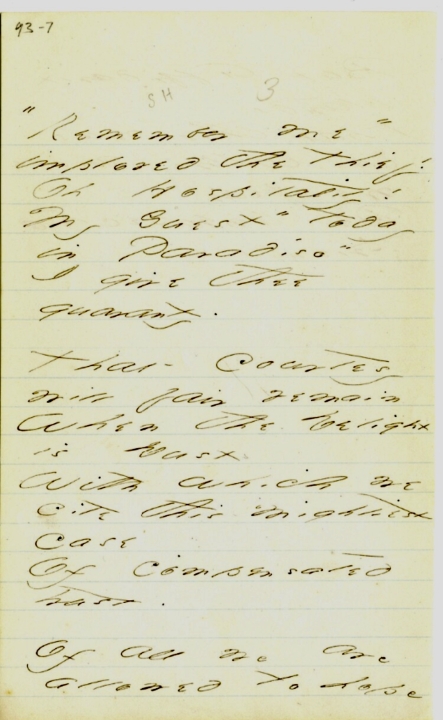 93-7
SH 3
"Remember me"
implored the Thief!
Oh Hospitality!
My Guest "Today
in Paradise"
I give thee
guaranty.
That Courtesy
will fair remain
When the Delight
is Dust
With which we
cite this mightiest
case
Of compensated
Trust.
Of all we are
allowed to hope